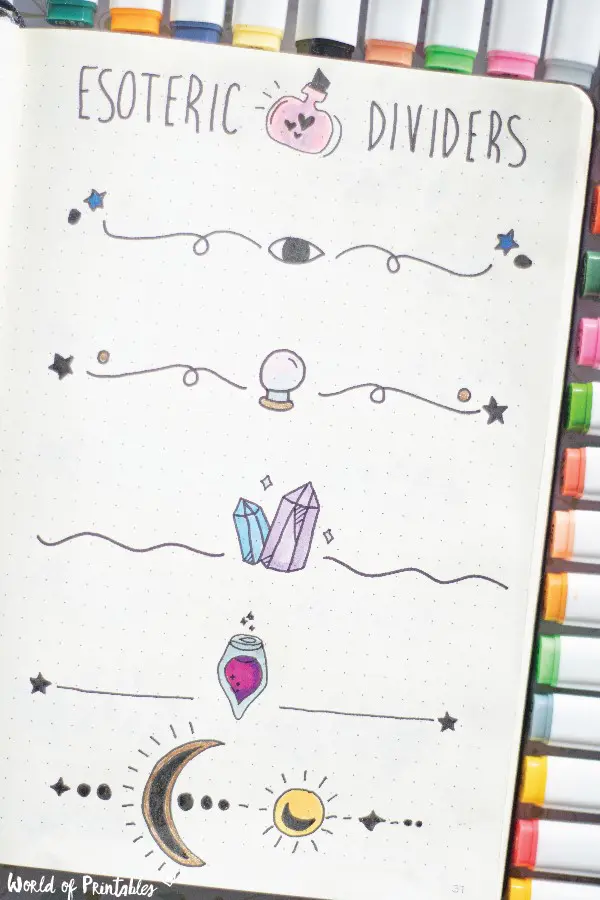 ESOTERIC DIVIDERS
31
World of Printables